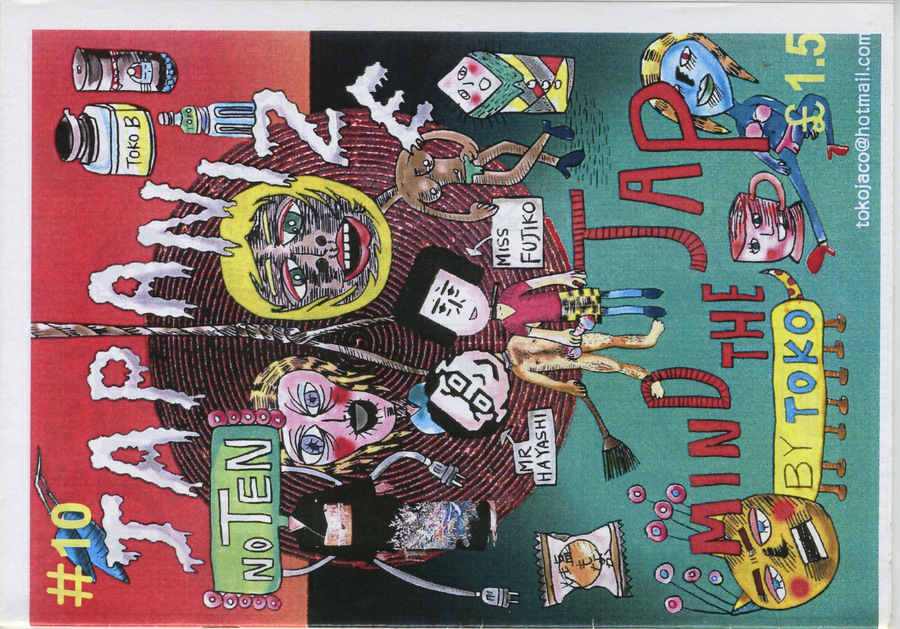 #10
JAPANIZE
TOKO B
TOKO
NOTEN
MR
HAYASHI
MISS
FUJIKO
塩
もち
MIND
THE
JAP
BY TOKO
£1.5
tokojaco@hotmail.com